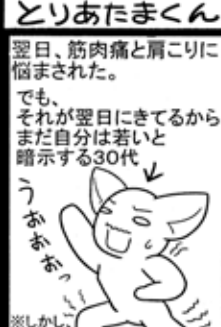 とりあたまくん
翌日、筋肉痛と肩こりに
悩まされた。
でも、
それが翌日にきてるから
まだ自分は若いと
暗示する30代
うおぉおぉっ
※しかし、